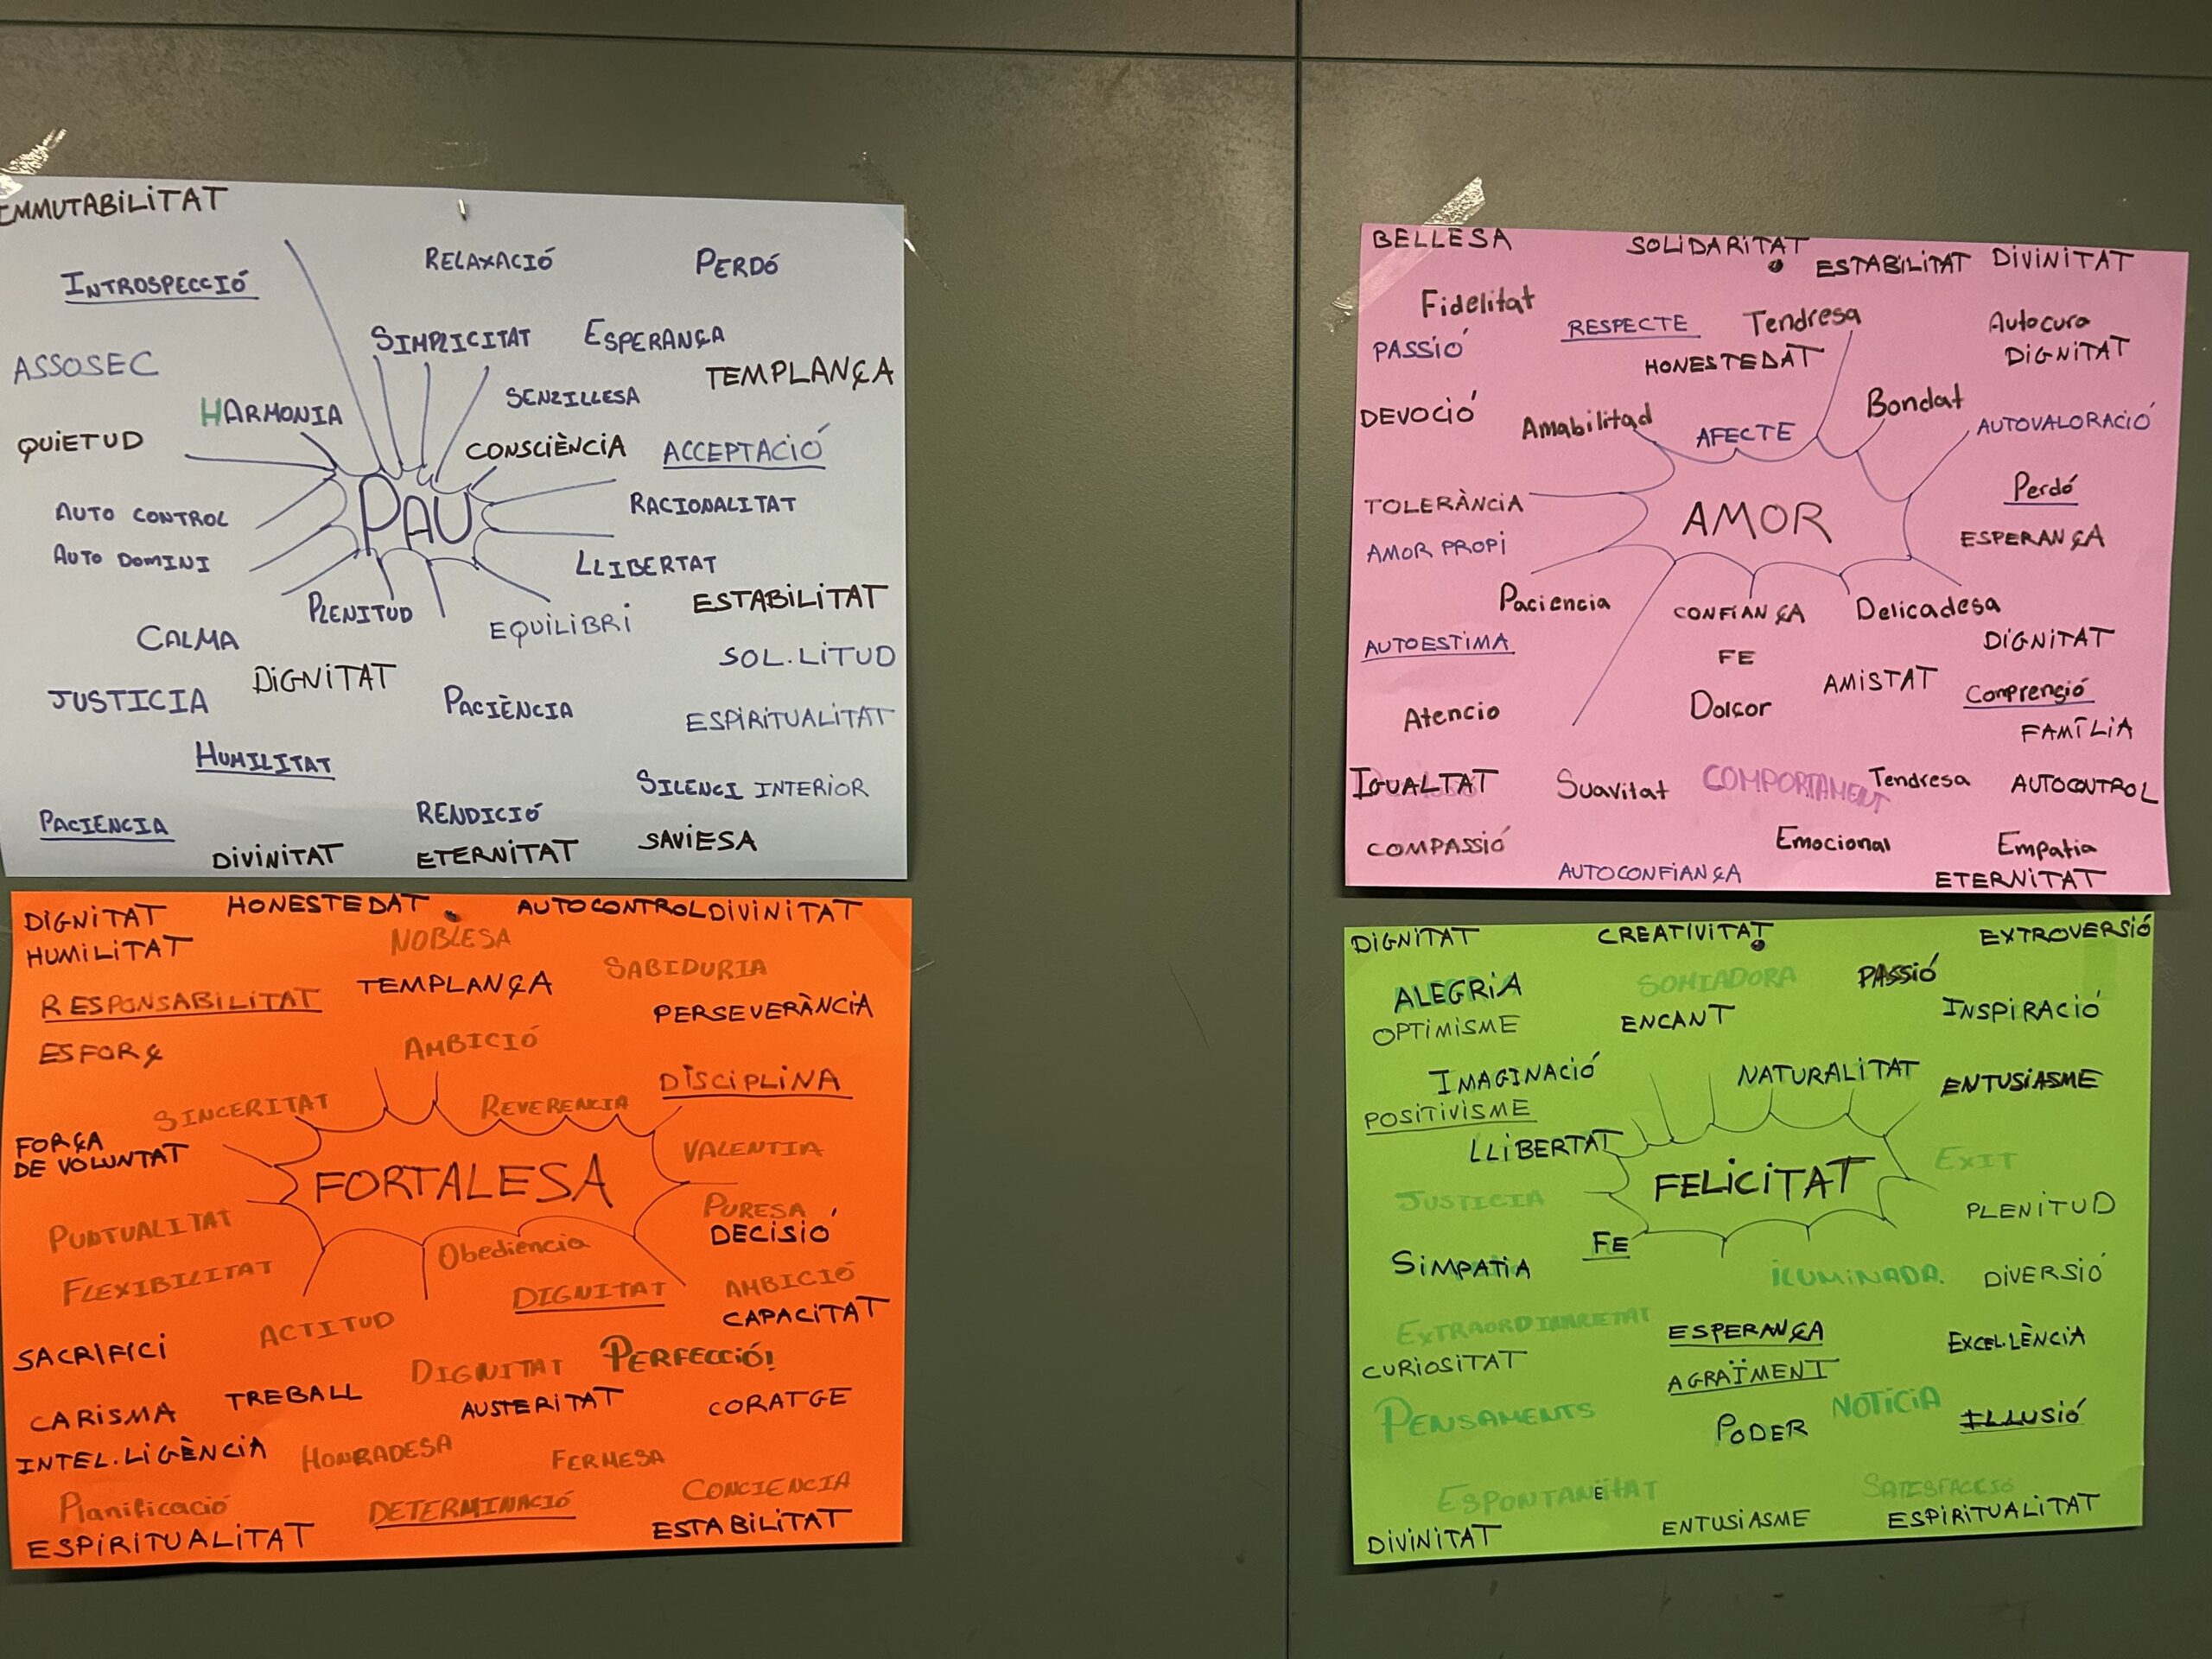 IMMUTABILITAT
RELAXACIÓ
PERDÓ
INTROSPECCIÓ
SIMPLICITAT
ESPERANÇA
ASSOSEC
TEMPLANÇA
SENZILLESA
HARMONIA
QUIETUD
CONSCIÈNCIA
ACCEPTACIÓ
PAU
RACIONALITAT
AUTO CONTROL
AUTO DOMINI
LLIBERTAT
ESTABILITAT
PLENITUD
EQUILIBRI
CALMA
SOL.LITUD
DIGNITAT
JUSTICIA
PACIÈNCIA
ESPIRITUALITAT
HUMILITAT
SILENCI INTERIOR
PACIENCIA
RENDICIÓ
SAVIESA
DIVINITAT
ETERNITAT
BELLESA
SOLIDARITAT
ESTABILITAT
DIVINITAT
Fidelitat
RESPECTE
Tendresa
Autocura
PASSIÓ
HONESTEDAT
DIGNITAT
DEVOCIÓ
Amabilitad
AFECTE
Bondat
AUTOVALORACIÓ
TOLERÀNCIA
AMOR
Perdó
AMOR PROPI
ESPERANÇA
Paciencia
CONFIANÇA
Delicadesa
AUTOESTIMA
FE
DIGNITAT
Atencio
Dolçor
AMISTAT
Comprensió
FAMÍLIA
IGUALTAT
Suavitat
COMPORTAMENT
Tendresa
AUTOCONTROL
COMPASSIÓ
Emocional
Empatia
AUTOCONFIANÇA
ETERNITAT
DIGNITAT
HONESTEDAT
AUTOCONTROL
DIVINITAT
HUMILITAT
NOBLESA
SABIDURIA
RESPONSABILITAT
TEMPLANÇA
PERSEVERÀNCIA
ESFORÇ
AMBICIÓ
DISCIPLINA
SINCERITAT
REVERENCIA
FORÇA
DE VOLUNTAT
VALENTIA
FORTALESA
PURESA
PUNTUALITAT
DECISIÓ
Obediencia
FLEXIBILITAT
DIGNITAT
AMBICIÓ
CAPACITAT
ACTITUD
SACRIFICI
DIGNITAT
PERFECCIÓ!
CARISMA
TREBALL
AUSTERITAT
CORATGE
INTEL.LIGÈNCIA
HONRADESA
FERMESA
Planificació
DETERMINACIÓ
CONCIENCIA
ESPIRITUALITAT
ESTABILITAT
DIGNITAT
CREATIVITAT
EXTROVERSIÓ
ALEGRIA
SOMIADORA
PASSIÓ
OPTIMISME
ENCANT
INSPIRACIÓ
IMAGINACIÓ
NATURALITAT
ENTUSIASME
POSITIVISME
LLIBERTAT
FELICITAT
EXIT
JUSTICIA
PLENITUD
FE
SIMPATIA
ILUMINADA.
DIVERSIÓ
EXTRAORDINARIETAT
ESPERANÇA
EXCEL.LÈNCIA
CURIOSITAT
AGRAÏMENT
PENSAMENTS
PODER
NOTICIA
IL.LUSIÓ
SATISFACCIÓ
DIVINITAT
ENTUSIASME
ESPIRITUALITAT